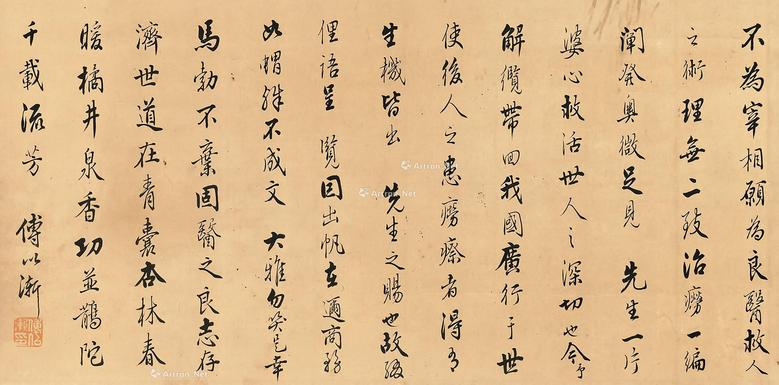 不為宰相願為良醫救人
之術理無二致治癆一編
闡發奧微足見 先生一片
婆心救活世人之深切也今予
解纜帶回我國廣行于世
使後人之患癆瘵者得有
生機皆出 先生之賜也故綴
俚語呈 覽因出帆在邇商務
如蝟殊不成文 大雅勿笑是幸
馬勃不棄固醫之良志存
濟世道在青囊杏林春
暖橘井泉香功並鵲陀
千載流芳 傅以漸
Artron.Net
Artron.Net
Artron.Net
Artron.Net